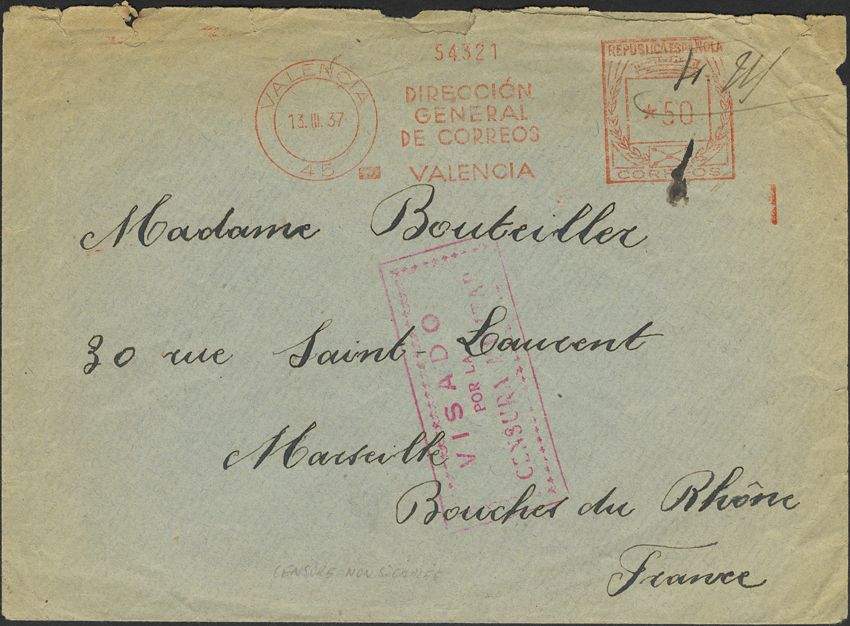 54321
VALENCIA
13.III.37
45
DIRECCIÓN
GENERAL
DE CORREOS
VALENCIA
REPUBLICA ESPAÑOLA
*50
CORREOS
Madame Bouteiller
30 rue Saint Laurent
Marseille
Bouches du Rhône
France
VISADO
POR LA
CENSURA MILITAR
CENSURE NON SIGNALÉE